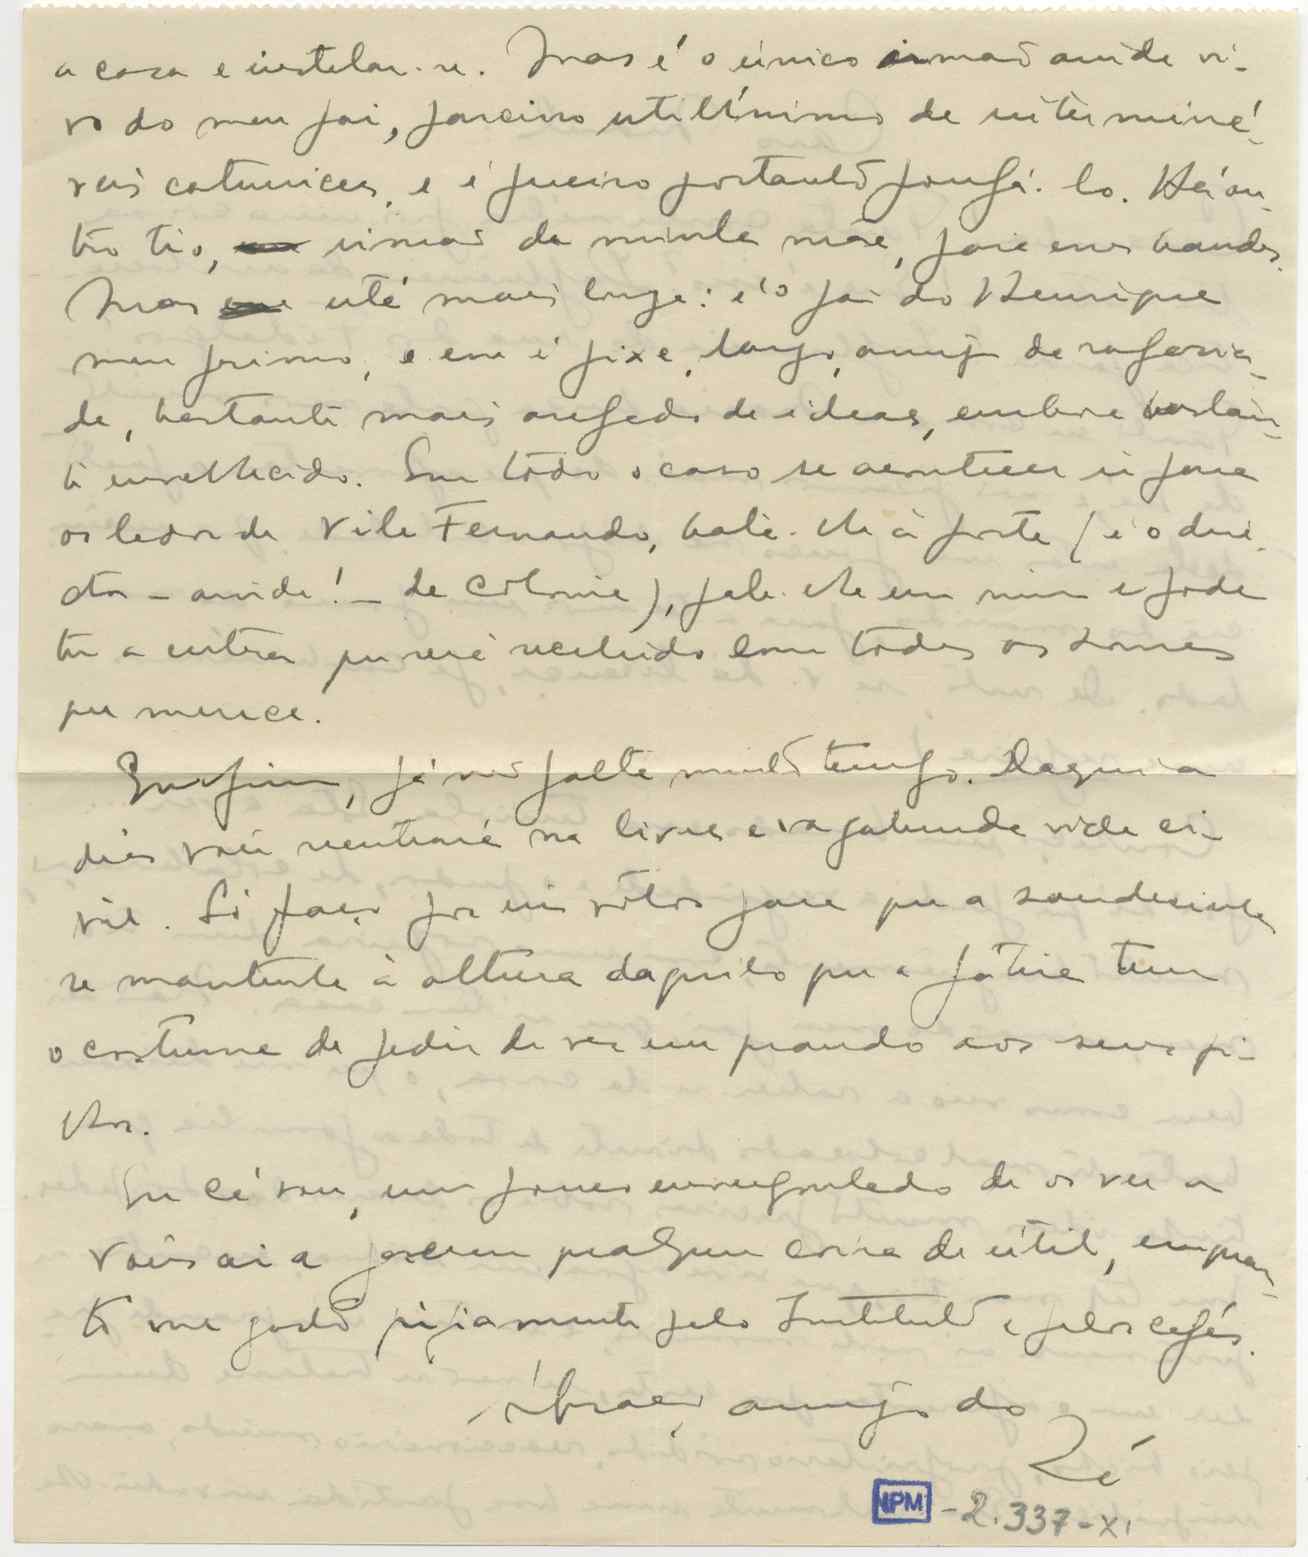 a casa e instalar-se. Mas é o único irmão ainda vi-
vo do meu pai, parceiro utilíssimo de intermináveis
veis e é preciso portanto poupá-lo. Há ou-
tro tio, irmão da minha mãe, para essas bandas.
Mas até mais longe: é o pai do Henrique
meu primo, e esse é fixe, largo, amigo de rapazia-
da, bastante mais arejado de ideas, embora bastan-
te envelhecido. Em todo o caso se acontecer ir para
os lados de Vila Fernando, bata-lhe à porta (é o dire-
ctor - ainda! - da Colonia), fale-lhe em mim e pode
ter a certeza que será recebido com todas as honras
que merece.
Enfim, já não falta muito tempo. Daqui a
dias você reentrará na livre e vagabunda vida ci-
vil. Só faço por si votos para que a saudesinha
se mantenha à altura daquilo que a Pátria tem
o costume de pedir de vez em quando aos seus fi-
lhos.
Eu cá vou, um pouco envergonhado de os ver a
vocês aí a fazerem qualquer coisa de útil, emquan-
to me gasto pifiamente pelo Instituto e pelos cafés.
Abraço amigo do
Zé
IPM - 2.337-XI